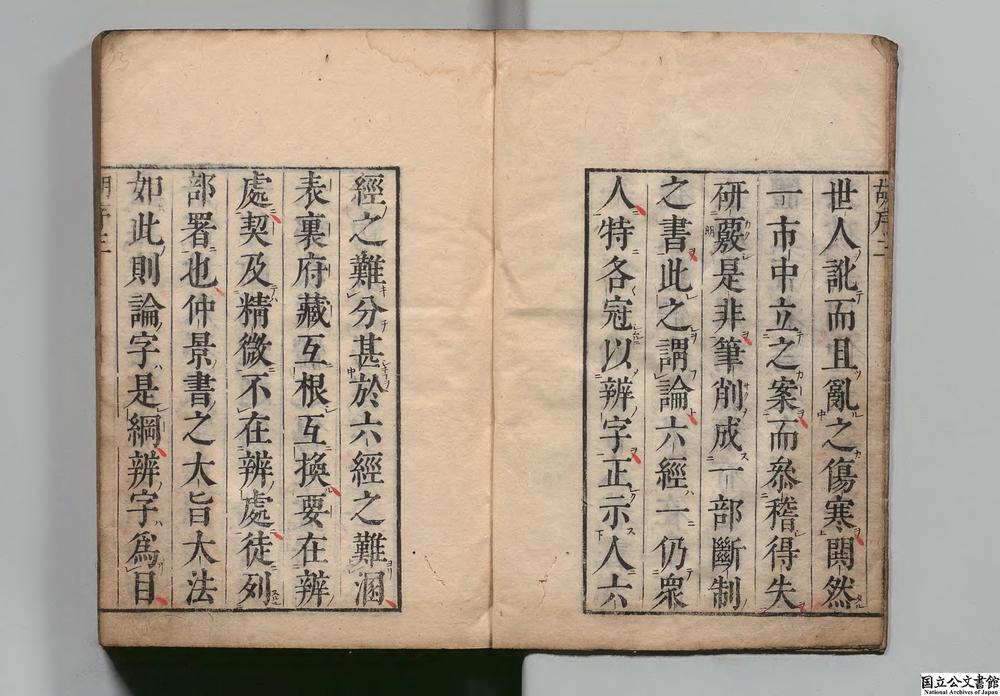 胡序二
世人訛而且亂之傷寒閧然
一市中立之案而叅稽得失
研覈是非筆削成一部斷制
之書此之謂論六經一仍衆
人特各冠以辨字正示人六
經之難分甚於六經之難溷
表裏府藏互根互換要在辨
處契及精微不在辨處徒列
部署也仲景書之大旨大法
如此則論字是綱辨字爲目
胡序三
国立公文書館
National Archives of Japan